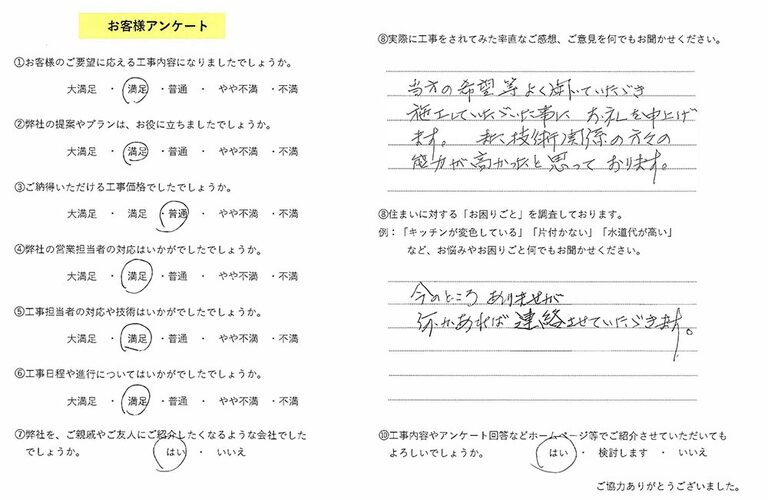 お客様アンケート
①お客様のご要望に応える工事内容になりましたでしょうか。
大満足 ・ 満足 ・普通 ・ やや不満 ・不満
②弊社の提案やプランは、お役に立ちましたでしょうか。
大満足 ・ 満足 ・普通 ・ やや不満 ・不満
③ご納得いただける工事価格でしたでしょうか。
大満足 ・ 満足 ・普通 ・ やや不満 ・不満
④弊社の営業担当者の対応はいかがでしたでしょうか。
大満足 ・ 満足 ・普通 ・ やや不満 ・不満
⑤工事担当者の対応や技術はいかがでしたでしょうか。
大満足 ・ 満足 ・普通 ・ やや不満 ・不満
⑥工事日程や進行についてはいかがでしたでしょうか。
大満足 ・ 満足 ・普通 ・ やや不満 ・不満
⑦弊社を、ご親戚やご友人にご紹介したくなるような会社でした
でしょうか。 はい ・ いいえ
⑧実際に工事をされてみた率直なご感想、ご意見を何でもお聞かせください。
当方の希望等よく
施工していただいた事に お礼を申上げ
ます。 技術関係の方々の
能力が高かったと思って おります。
⑧住まいに対する「お困りごと」を調査しております。
例：「キッチンが変色している」「片付かない」「水道代が高い」
など、お悩みやお困りごと何でもお聞かせください。
今のところ ありませんが
何かあれば 連絡させていただきます。
⑩工事内容やアンケート回答などホームページ等でご紹介させていただいても
よろしいでしょうか。 はい ・ 検討します ・ いいえ
ご協力ありがとうございました。